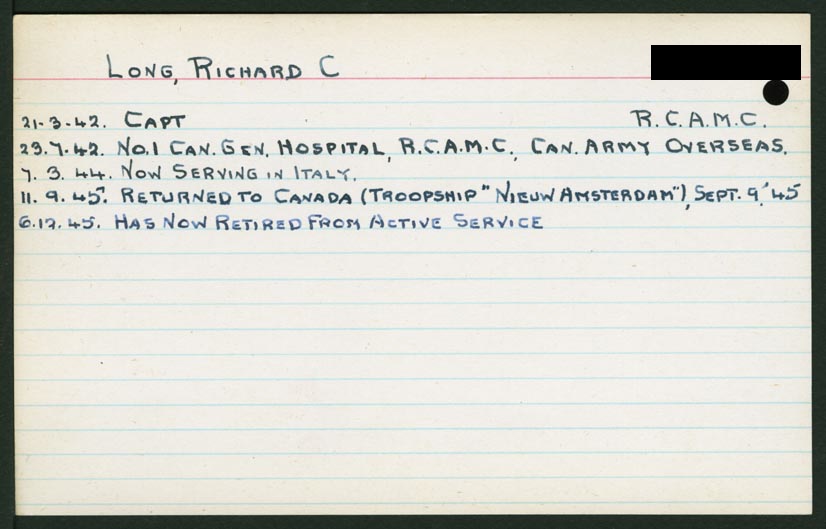 LONG, RICHARD C
21-3-42. CAPT R.C.A.M.C.
29.7.42. NO.1 CAN. GEN. HOSPITAL, R.C.A.M.C., CAN. ARMY OVERSEAS.
7. 3. 44. NOW SERVING IN ITALY.
11. 9. 45. RETURNED TO CANADA (TROOPSHIP "NIEUW AMSTERDAM"), SEPT. 9, '45
6.12.45. HAS NOW RETIRED FROM ACTIVE SERVICE